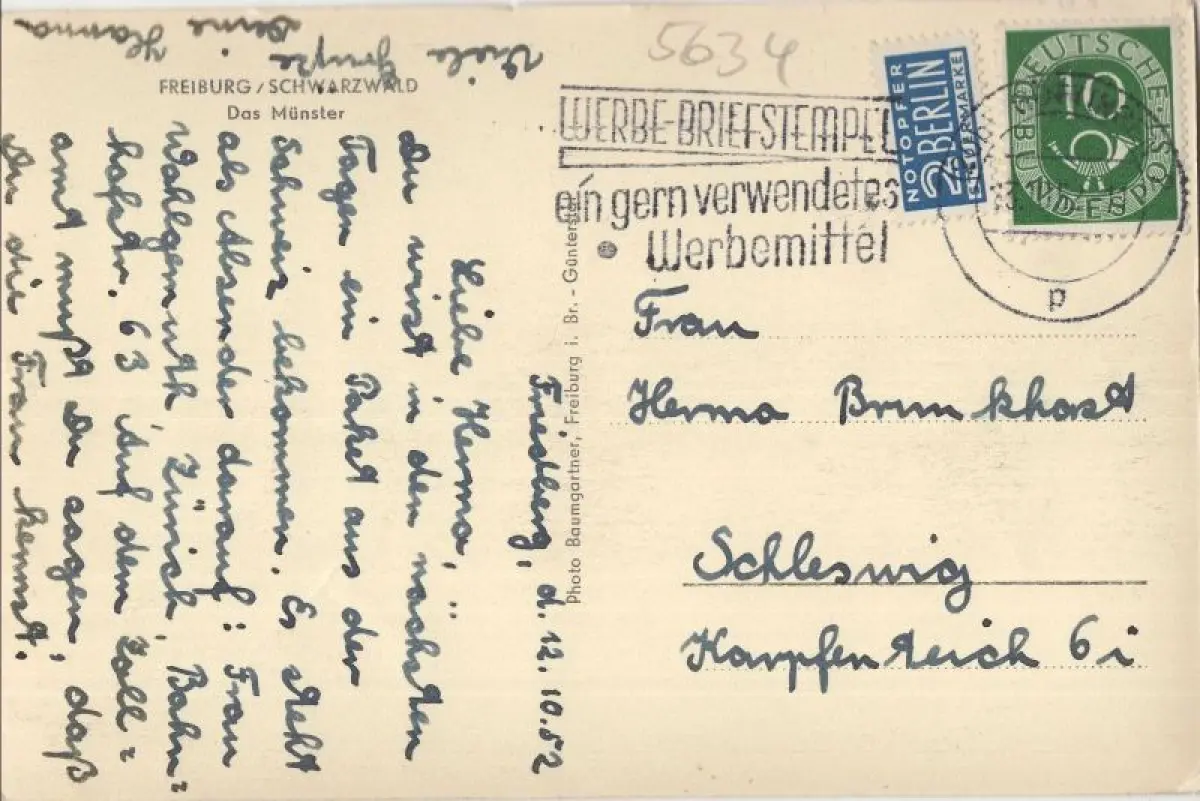 FREIBURG/SCHWARZWALD
Das Münster
Friedberg, d. 12.10.52
Liebe Herma,
Du wirst in den nächsten
Tagen ein Paket aus der
Schweiz bekommen. Es steht
als Absender darauf: Frau
Wohlgemuth Zürich, Bahn-
hofstr. 63 Auf dem Zoll-
amt mußt Du sagen, daß
Du die Frau kennst.
Viele Grüße
Deine Hanna
Photo Baumgartner, Freiburg i. Br. - Günterstal
5634
WERBE-BRIEFSTEMPEL
ein gern verwendetes
Werbemittel
NOTOPFER
2 BERLIN
STEUERMARKE
DEUTSCHE BUNDESPOST
10
p
Frau
Herma Brunkhorst
Schleswig
Karpfenteich 6 i